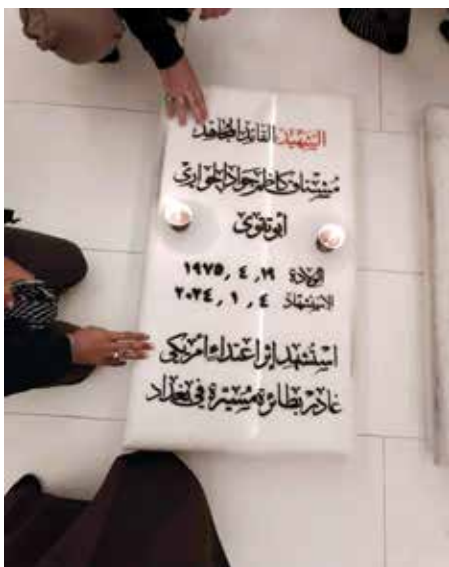 الشهيد القائد المجاهد
مشتاق كاظم جواد الجواري
أبو تقوى
الولادة ١٩٧٥,٤,١٩
الاستشهاد ٢٠٢٤,١,٤
استشهد إثر اعتداء أمريكي
غادر بطائرة مسيرة في بغداد